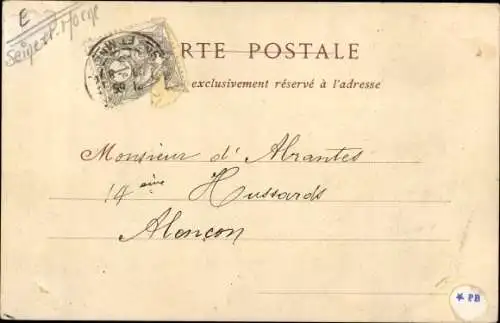 E
RTE POSTALE
exclusivement réservé à l'adresse
Monsieur d'Abrantes
14ème Hussards
Alençon
★ PB